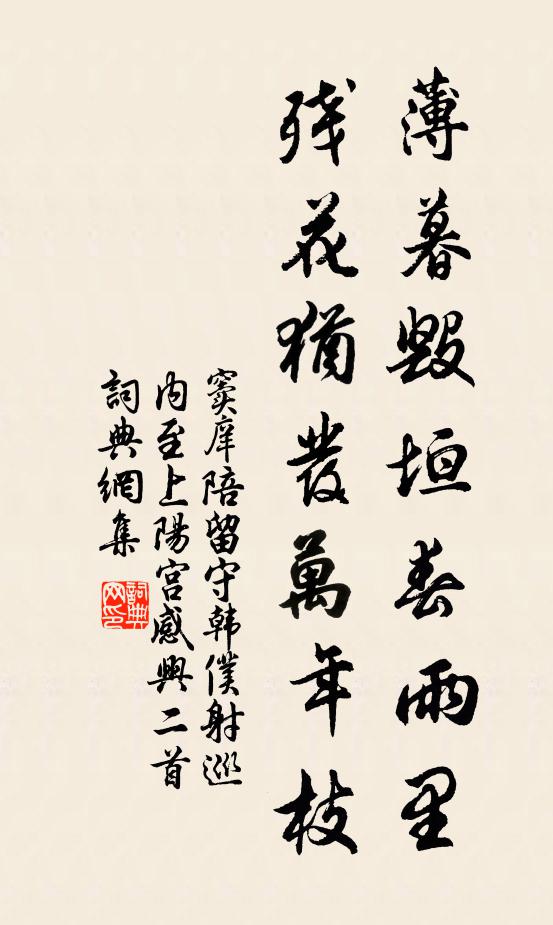 薄暮毀垣春雨里
残花猶發萬年枝
竇庠陪留守韓僕射巡
內至上陽宮感興二首
詞典網集
詞典
网印